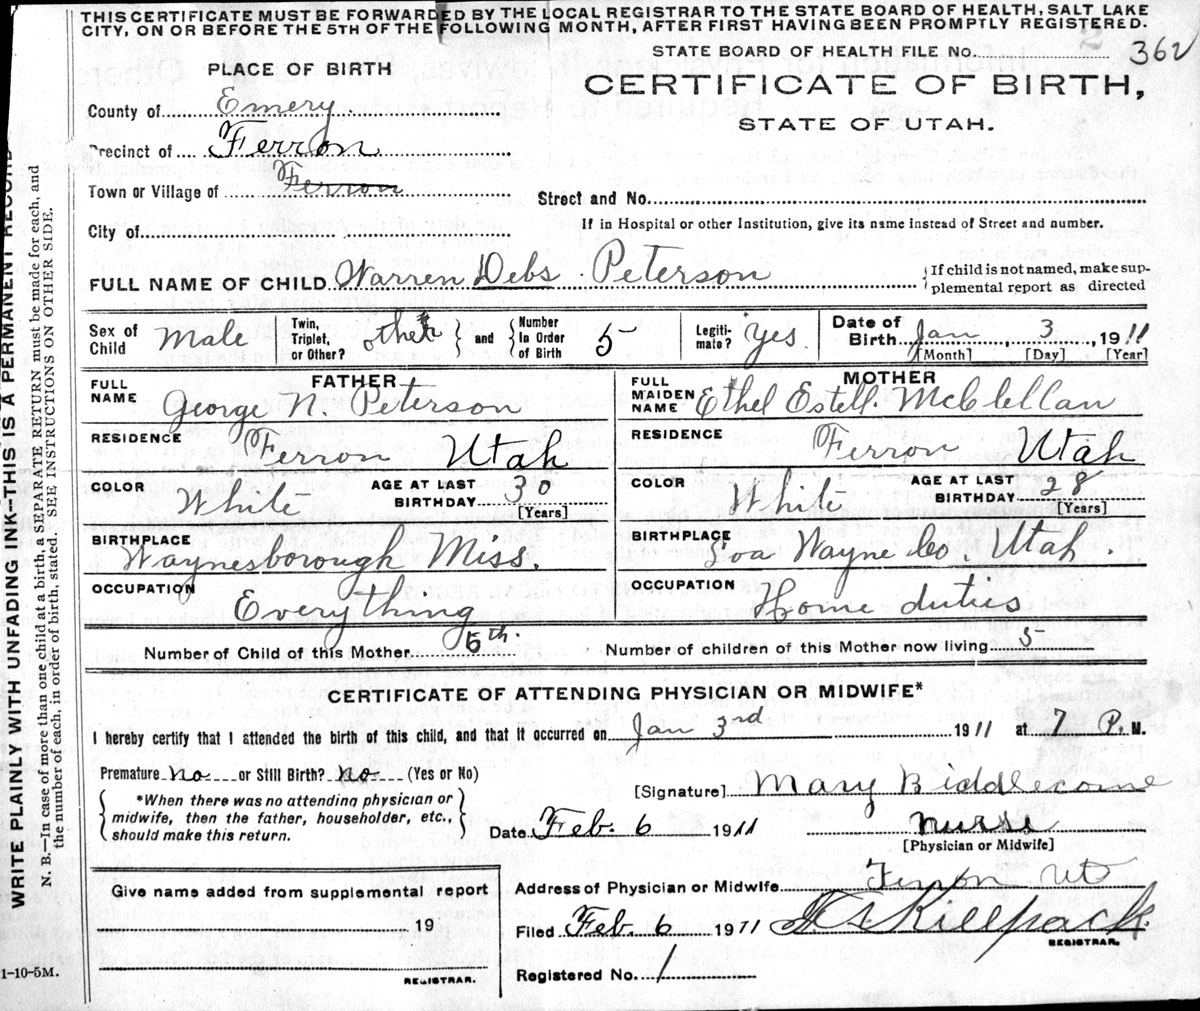 THIS CERTIFICATE MUST BE FORWARDED BY THE LOCAL REGISTRAR TO THE STATE BOARD OF HEALTH, SALT LAKE
CITY, ON OR BEFORE THE 5TH OF THE FOLLOWING MONTH, AFTER FIRST HAVING BEEN PROMPTLY REGISTERED.
STATE BOARD OF HEALTH FILE No. 362
PLACE OF BIRTH
CERTIFICATE OF BIRTH,
STATE OF UTAH.
County of Emery
Precinct of Ferron
Town or Village of Ferron
Street and No.
City of
If in Hospital or other Institution, give its name instead of Street and number.
FULL NAME OF CHILD Warren Debs Peterson
{If child is not named, make sup-
plemental report as directed
Sex of Child Male Twin, Triplet, or Other? other } and { Number In Order of Birth 5 Legiti-mate? Yes Date of Birth Jan 3 1911
[Month] [Day] [Year]
FATHER MOTHER
FULL NAME George N. Peterson FULL MAIDEN NAME Ethel Estell. McClellan
RESIDENCE Ferron Utah RESIDENCE Ferron Utah
COLOR White AGE AT LAST BIRTHDAY 30 [Years] COLOR White AGE AT LAST BIRTHDAY 28 [Years]
BIRTHPLACE Waynesborough Miss. BIRTHPLACE Loa Wayne Co Utah.
OCCUPATION Everything OCCUPATION Home duties
Number of Child of this Mother 5th. Number of children of this Mother now living 5
CERTIFICATE OF ATTENDING PHYSICIAN OR MIDWIFE*
I hereby certify that I attended the birth of this child, and that it occurred on Jan 3rd 1911 at 7 P. M.
Premature no or Still Birth? no (Yes or No)
[Signature] Mary Biddlecome
{ *When there was no attending physician or
midwife, then the father, householder, etc.,
should make this return. }
Date Feb. 6 1911 nurse
[Physician or Midwife]
Give name added from supplemental report
19
REGISTRAR.
Address of Physician or Midwife Ferron Ut
Filed Feb. 6 1911 Killpack.
REGISTRAR.
Registered No. 1
1-10-5M.
WRITE PLAINLY WITH UNFADING INK--THIS IS A PERMANENT RECORD
N. B.—In case of more than one child at a birth, a SEPARATE RETURN must be made for each, and
the number of each, in order of birth, stated. SEE INSTRUCTIONS ON OTHER SIDE.